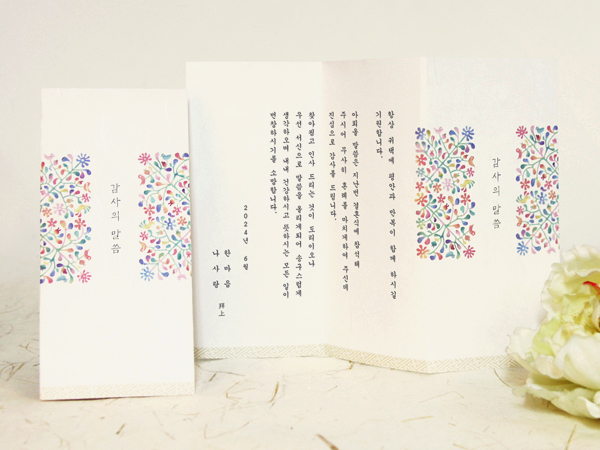 감사의 말씀
항상 귀댁에 평안과 만복이 함께 하시길
기원합니다.
아뢰올 말씀은 지난번 결혼식에 참석해
주시어 무사히 혼례를 마치게하여 주신데
진심으로 감사를 드립니다.
찾아뵙고 인사 드리는 것이 도리이오나
우선 서신으로 말씀을 올리게되어 송구스럽게
생각하오며 내내 건강하시고 뜻하시는 모든 일이
번창하시기를 소망합니다.
2024년 6월
한마음
나사랑 拜上
감사의 말씀